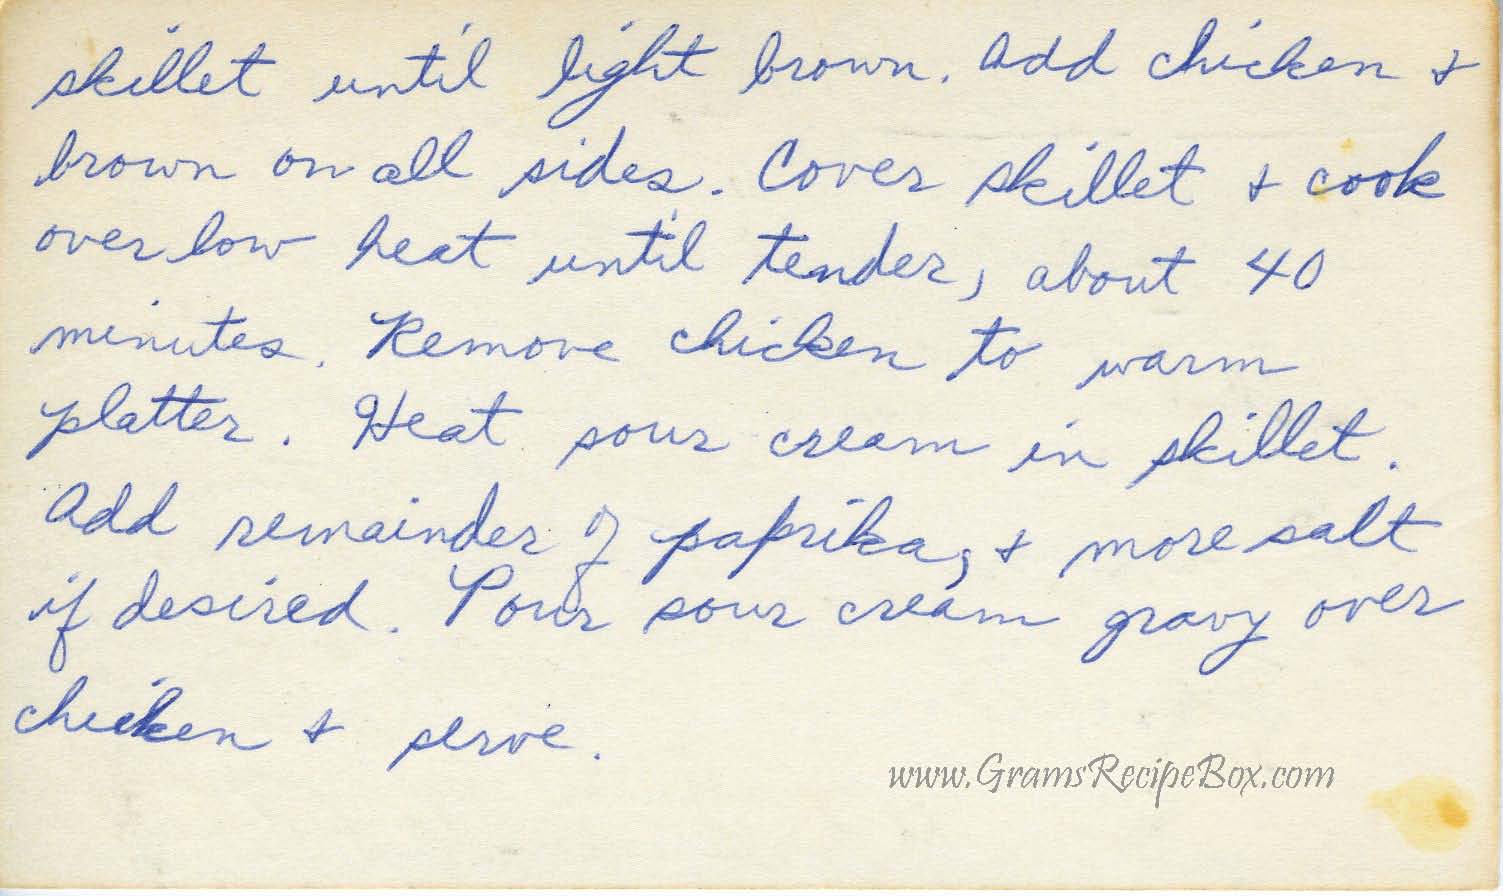 skillet until light brown. Add chicken &
brown on all sides. Cover skillet & cook
over low heat until tender, about 40
minutes. Remove chicken to warm
platter. Heat sour cream in skillet.
Add remainder of paprika, & more salt
if desired. Pour sour cream gravy over
chicken & serve.
www.GramsRecipeBox.com